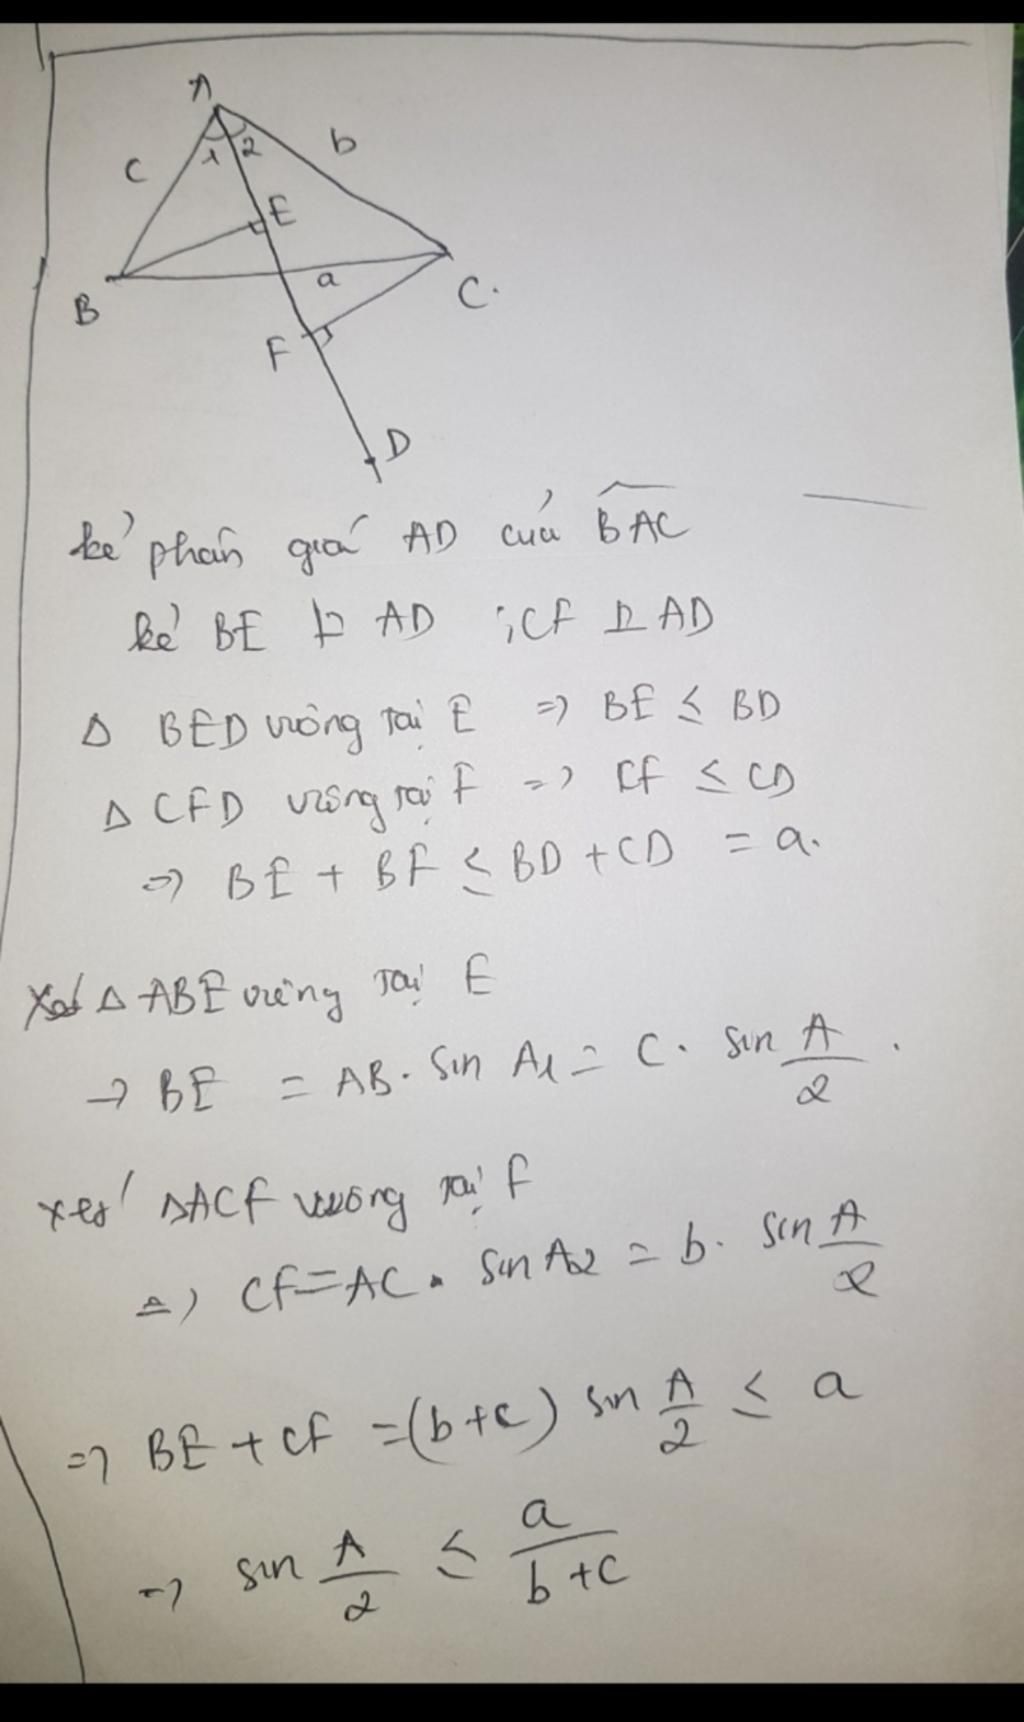 A
c
1 2
b
E
B
a
C.
F
D
kẻ phân giác AD của BAC
kẻ BE ⊥ AD ; CF ⊥ AD
Δ BED vuông tại E => BE ≤ BD
Δ CFD vuông tại F => CF ≤ CD
=> BE + BF ≤ BD + CD = a.
Xét Δ ABE vuông tại E
→ BE = AB. Sin A1 = C. Sin A/2.
xét ΔACF vuông tại F
=> CF = AC. Sin A2 = b. sin A/2
=> BE + CF = (b+c) sin A/2 ≤ a
=> sin A/2 ≤ a/b+c